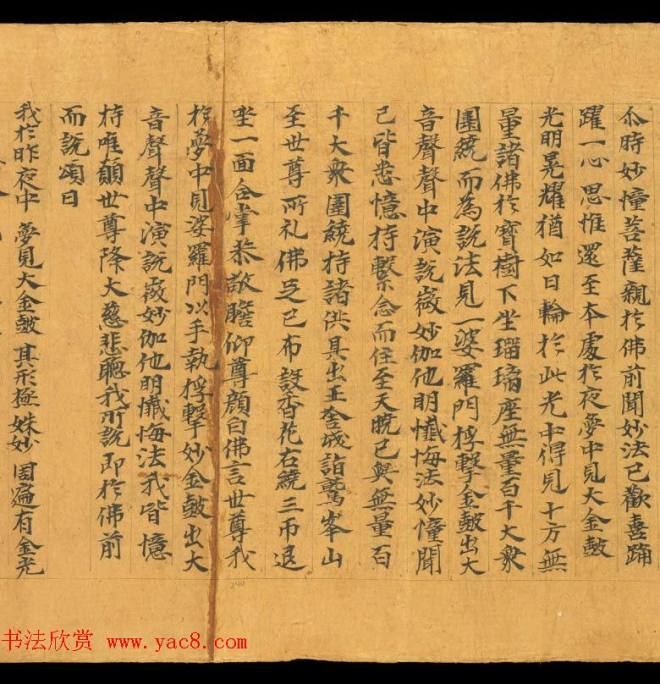 尒時妙憧菩薩親於佛前聞妙法已歡喜踊
躍一心思惟還至本處於夜夢中見大金皷
光明晃耀猶如日輪於此光中得見十方無
量諸佛於寶樹下坐瑠璃座無量百千大衆
圍繞而為說法見一婆羅門桴擊金皷出大
音聲聲中演說微妙伽他明懺悔法妙憧聞
已皆悉憶持繫念而住至天曉已與無量百
千大衆圍繞持諸供具出王舍城詣鷲峯山
至世尊所礼佛足已布設香花右繞三帀退
坐一面合掌恭敬瞻仰尊顏白佛言世尊我
於夢中見婆羅門以手執桴擊妙金皷出大
音聲聲中演說微妙伽他明懺悔法我皆憶
持唯願世尊降大慈悲聽我所說即於佛前
而說頌曰
我於昨夜中 夢見大金皷 其形極姝妙 周遍有金光
书法欣赏 www.yac8.com